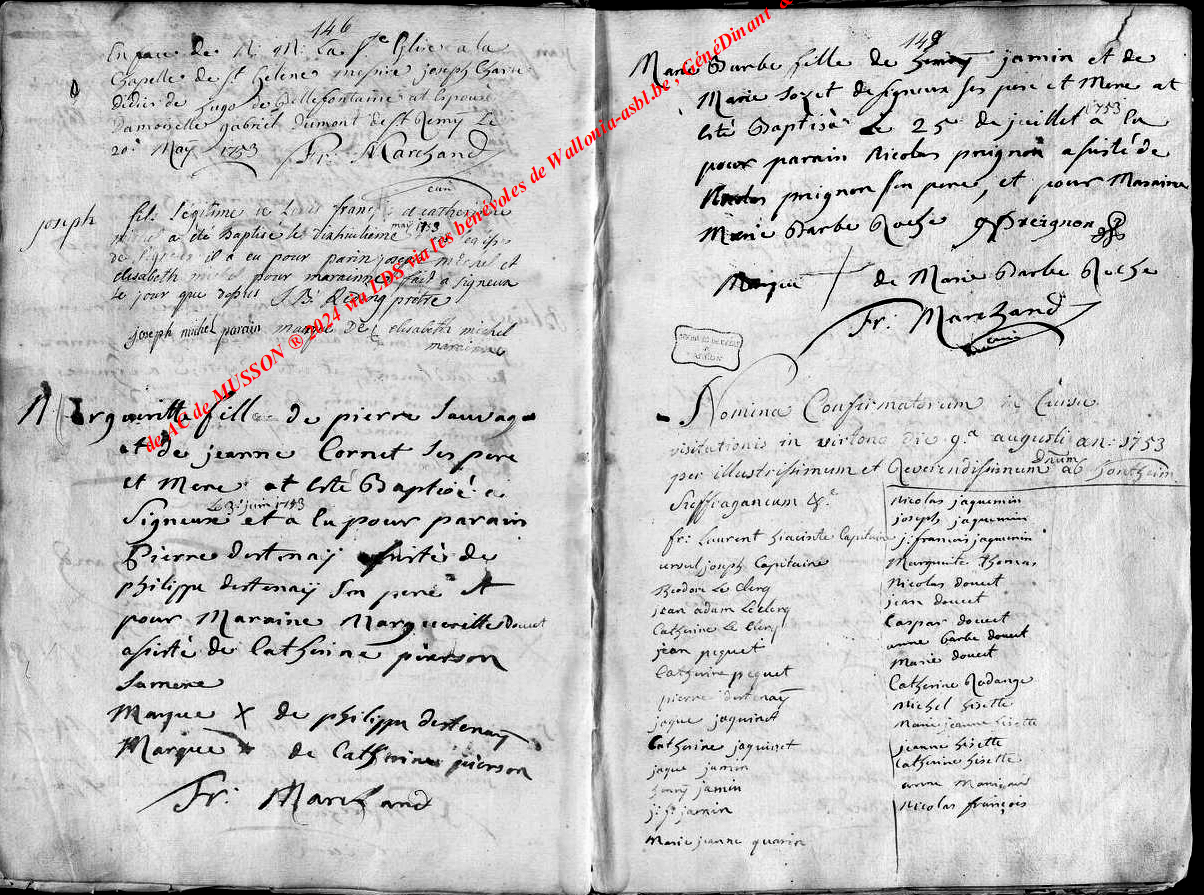 146
En face de N. M. La Ste Eglise a la
Chapelle de St helene messire joseph Charle
didier de hugo de Bellefontaine at Epousé
Damoiselle gabriel Dumont de St Remy Le
20e May 1753 Fr. Marchand
curé
joseph fil: légitime de Louis franç et catherine
a été Baptisé le dixhuitieme may 1753
de Signeux il a eu pour parin joseph michel et
elisabeth michel pour marainne fait a signeux
le jour que dessus J. B. pretre
joseph michel parain marque de elisabeth michel
marainne
Margueritte fille de pierre Sauvage
et de jeanne Cornet Ses pere
et Mere at Esté Baptisé a
Signeux Le 3e juin 1753 et a Eu pour parain
Pierre dertenay asisté de
philippe dertenaÿ Son pere et
pour Maraine Margueritte Douet
asisté de Catherine pierson
Samere
Marque X de philippe dertenaÿ
Marque X de Catherine pierson
Fr: Marchand
149
Marie Barbe fille de henry jamin et de
Marie Sozet de signeux Ses pere et Mere at
Esté Baptisée Le 25e de juillet 1753 a Eu
pour parain Nicolas preignon asisté de
Nicolas preignon Son pere, et pour Maraine
Marie Barbe Roche Preignon
Marque de Marie Barbe Roche
Fr. Marchand
curé
Nomina Confirmatorum in Cursu
visitationis in virtono Die 9a augusti an: 1753
per illustrissimum et Reverendissimum dnum ab hontheim
Suffraganeum &c
fr: Laurent hiacinte Capitaine
ursul joseph Capitaine
Theodore Le Clerq
jean adam Leclerq
Catherine Le Clerq
jean pequet
Catherine pequet
pierre dertenaÿ
jaque jaquinet
Catherine jaquinet
jaque jamin
henry jamin
j: fr jamin
Marie jeanne quarin
Nicolas jaquemin
joseph jaquemin
j: francois jaquemin
Marguerite thomas
Nicolas douet
jean douet
Caspar douet
anne barbe douet
Marie douet
Catherine Rodange
Michel hisette
Marie jeanne hisette
jeanne hisette
Catherine hisette
anne
Nicolas françois
des AC de MUSSON ® 2024 via LDS via les bénévoles de Wallonia-asbl.be, GénéDinant &